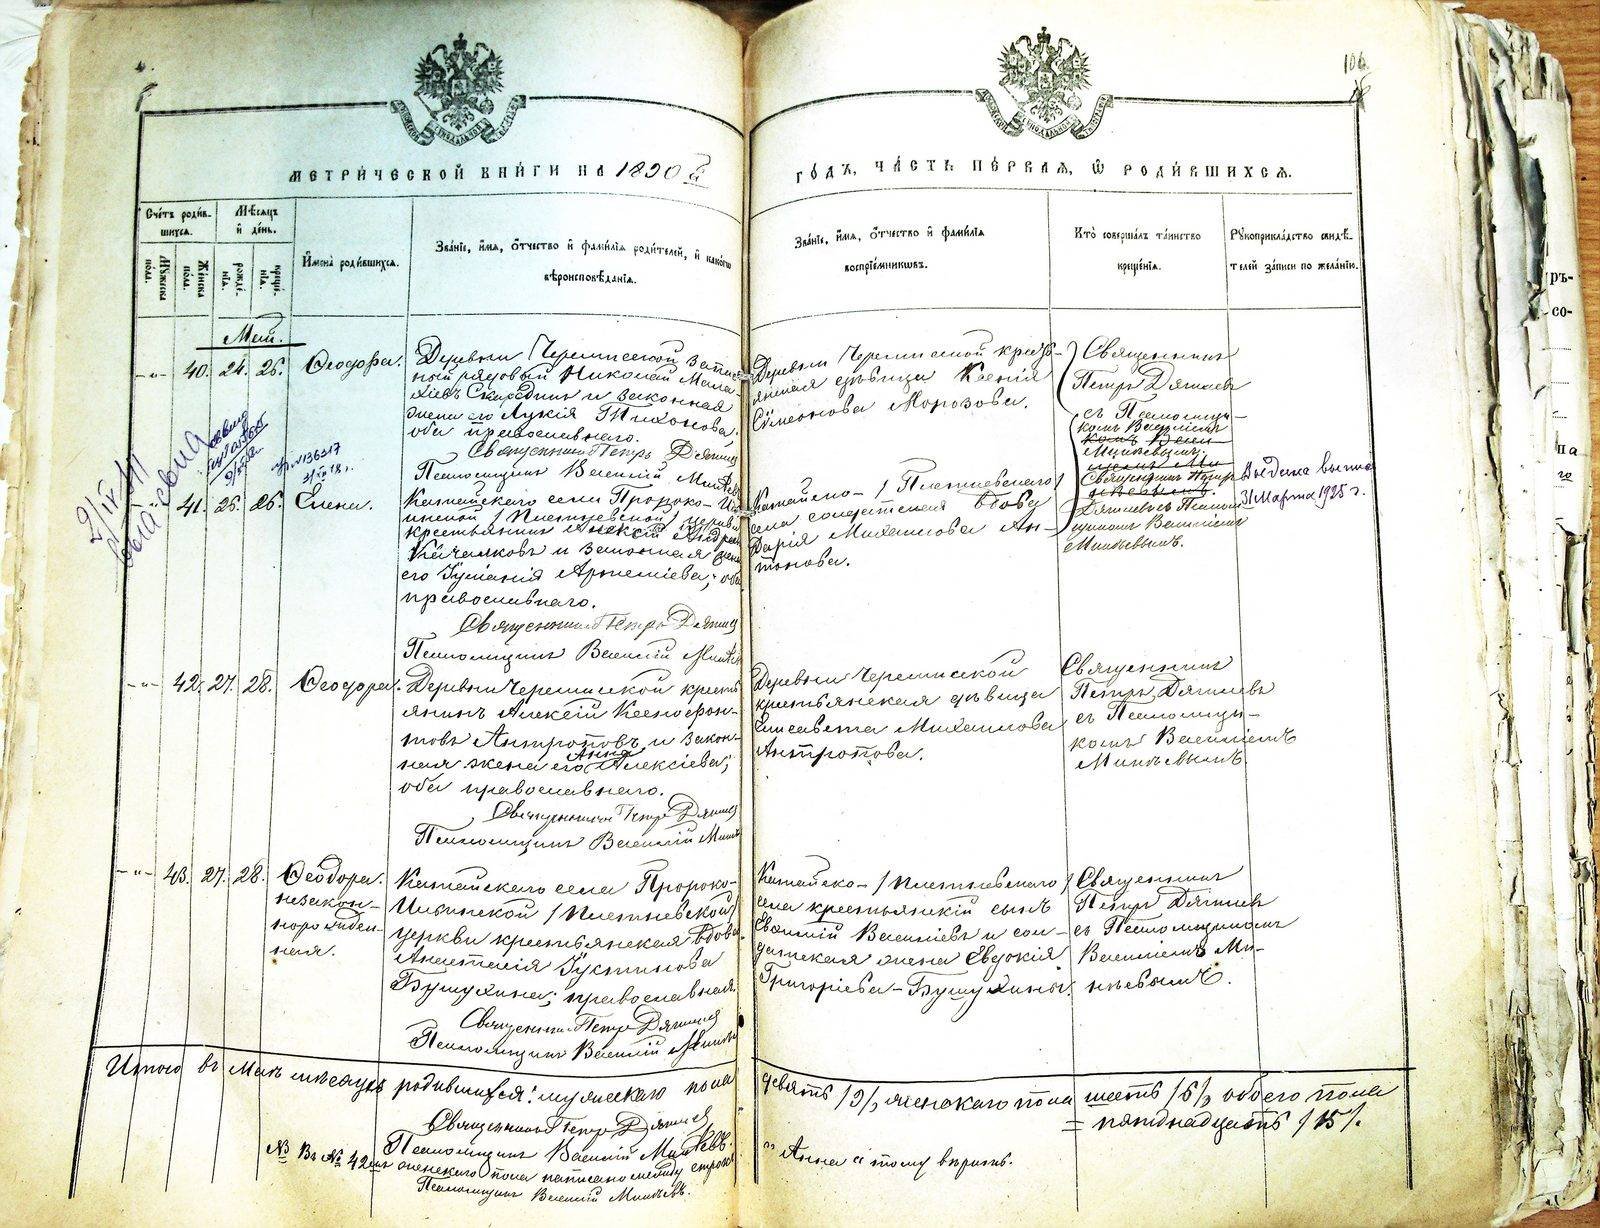 106
МЕТРИ́ЧЕСКОЙ КНИ́ГИ НА 1890 й
ГО́ДЪ, ЧА́СТЬ ПЕ́РВАЯ, Ѡ РОДИ́ВШИХСЯ.
Сче́тъ роди́в-
шихся.
Му́жеска по́ла.
Же́нска по́ла.
Мѣ́сяцъ и́ де́нь.
рожде́-
нїя.
креще́-
нїя.
И́мена̀ роди́вшихся.
Зва́нїе, и́мя, о́тчество и́ фами́лїя роди́телей, и́ како́гѡ
вѣроисповѣ́данїя.
Зва́нїе, и́мя, о́тчество и́ фами́лїя
воспрїе́мниковъ.
Кто̀ соверша́лъ та́инство
креще́нїя.
Рꙋкоприкла́дство свидѣ́-
телей за́писи по жела́нїю.
Май.
-"- 40. 24. 26. Ѳеодора.
Деревни Черемисской запас-
ный рядовый Николай Мала-
хіевъ и законная
жена его Лукія Тихонова;
оба православнаго.
Священникъ Петръ Дягилев
Псаломщикъ Василій Минѣев
Деревни Черемисской кресть-
янская дѣвица Ксенія
Сѵмеонова Морозова.
Священникъ
Петръ Дягилев
съ Псаломщи-
комъ Василіемъ
№136317
41. 25. 26. Елена.
Катайскаго села Пророко-Иль-
инской /Плетневской/ церкви
крестьянинъ Алексій Андреев
Качалковъ и законная жена
его Іуліанія Артеміева; оба
православнаго.
Священникъ Петръ Дягилев
Псаломщикъ Василій Минѣев
Катайско-/Плетневскаго/
села солдатская вдова
Дарія Михаилова Ан-
тонова.
Священникъ Петръ
Дягилевъ съ Псалом-
щикомъ Василіемъ
Минѣевымъ.
Выдана выпис
31 Марта 1925 г.
-"- 42. 27. 28. Ѳеодора.
Деревни Черемисской кресть-
янинъ Алексій Ксенофон-
товъ Антроповъ и закон-
ная жена его Анна Алексіева;
оба православнаго.
Священникъ Петръ Дягилев
Псаломщикъ Василій Минѣ
Деревни Черемисской
крестьянская дѣвица
Елисавета Михаилова
Антропова.
Священникъ
Петръ Дягилевъ
съ Псаломщи-
комъ Василіемъ
Минѣевымъ.
-"- 43. 27. 28. Ѳеодора.
незакон-
норожден-
ная.
Катайскаго села Пророко-
Ильинской /Плетневской/
церкви крестьянская вдова
Анастасія Іустинова
Бушуихина; православная.
Священникъ Петръ Дягилев
Псаломщикъ Василій Минѣев
Катайско-/Плетневскаго/
села крестьянскій сынъ
Евѳимій Василіевъ и сол-
датская жена Евдокія
Григоріева-Бушуихины.
Священникъ
Петръ Дягилев
съ Псаломщикомъ
Василіемъ Ми-
нѣевымъ.
Итого въ Маѣ мѣсяцѣ родившихся: мужескаго пола
девять /9/, женскаго пола шесть /6/, обоего пола
= пятнадцать /15/.
Священникъ Петръ Дягилев
Псаломщикъ Василій Минѣевъ.
№ Въ № 42м женскаго пола написано между строкъ
"Анна" тому вѣрить.
Псаломщикъ Василій Минѣевъ.